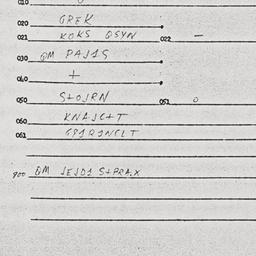 010
020 GREK
021 KOKS QSYN 022 —
030 QM PAJ1S
040 +
050 S+OJRN 051 0
060 KNAJC+T
061
900 QM JEJD1 S+PRAX